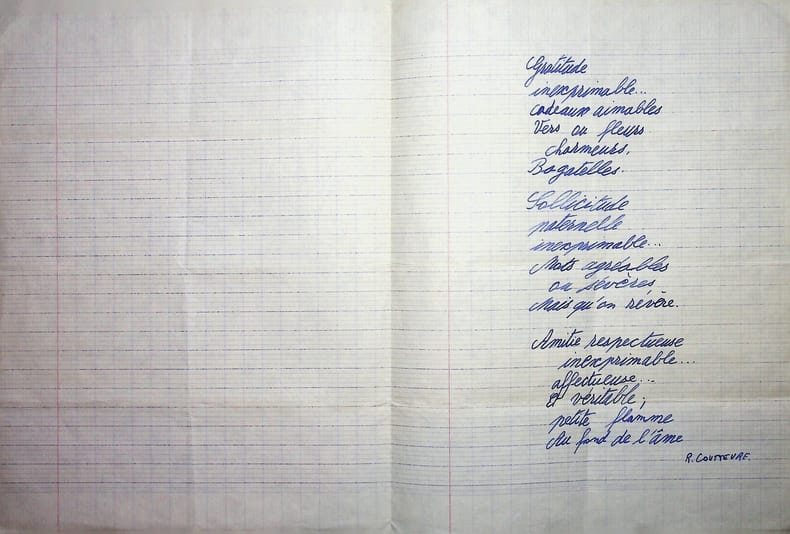 Gratitude
inexprimable...
cadeaux aimables
Vers ou fleurs
charmeurs,
Bagatelles.
Sollicitude
paternelle
inexprimable...
Mots agréables
ou sévères
Mais qu'on révère.
Amitié respectueuse
inexprimable...
affectueuse...
Et véritable,
petite flamme
Au fond de l'âme
R.